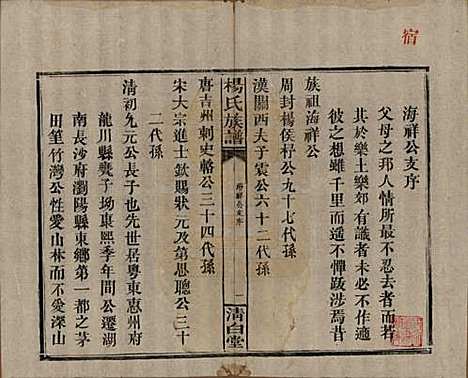 宿
海祥公支序
父母之邦人情所最不忍去者而若
其於樂土樂郊有識者未必不作適
彼之想雖千里而遥不憚跋涉焉昔
族祖海祥公
周封楊侯杼公九十七代孫
漢關西夫子震公六十二代孫
楊氏族譜
海祥公支序
一
清白堂
唐吉州刺史輅公三十四代孫
宋大宗進士欽賜狀元及第思聰公三十
二代孫
清初允元公長子也先世居粵東惠州府
龍川縣興子坳東熙季年間公遷湖
南長沙府瀏陽縣東鄉第一都之茅
田篁竹灣公性愛山林而不愛深山